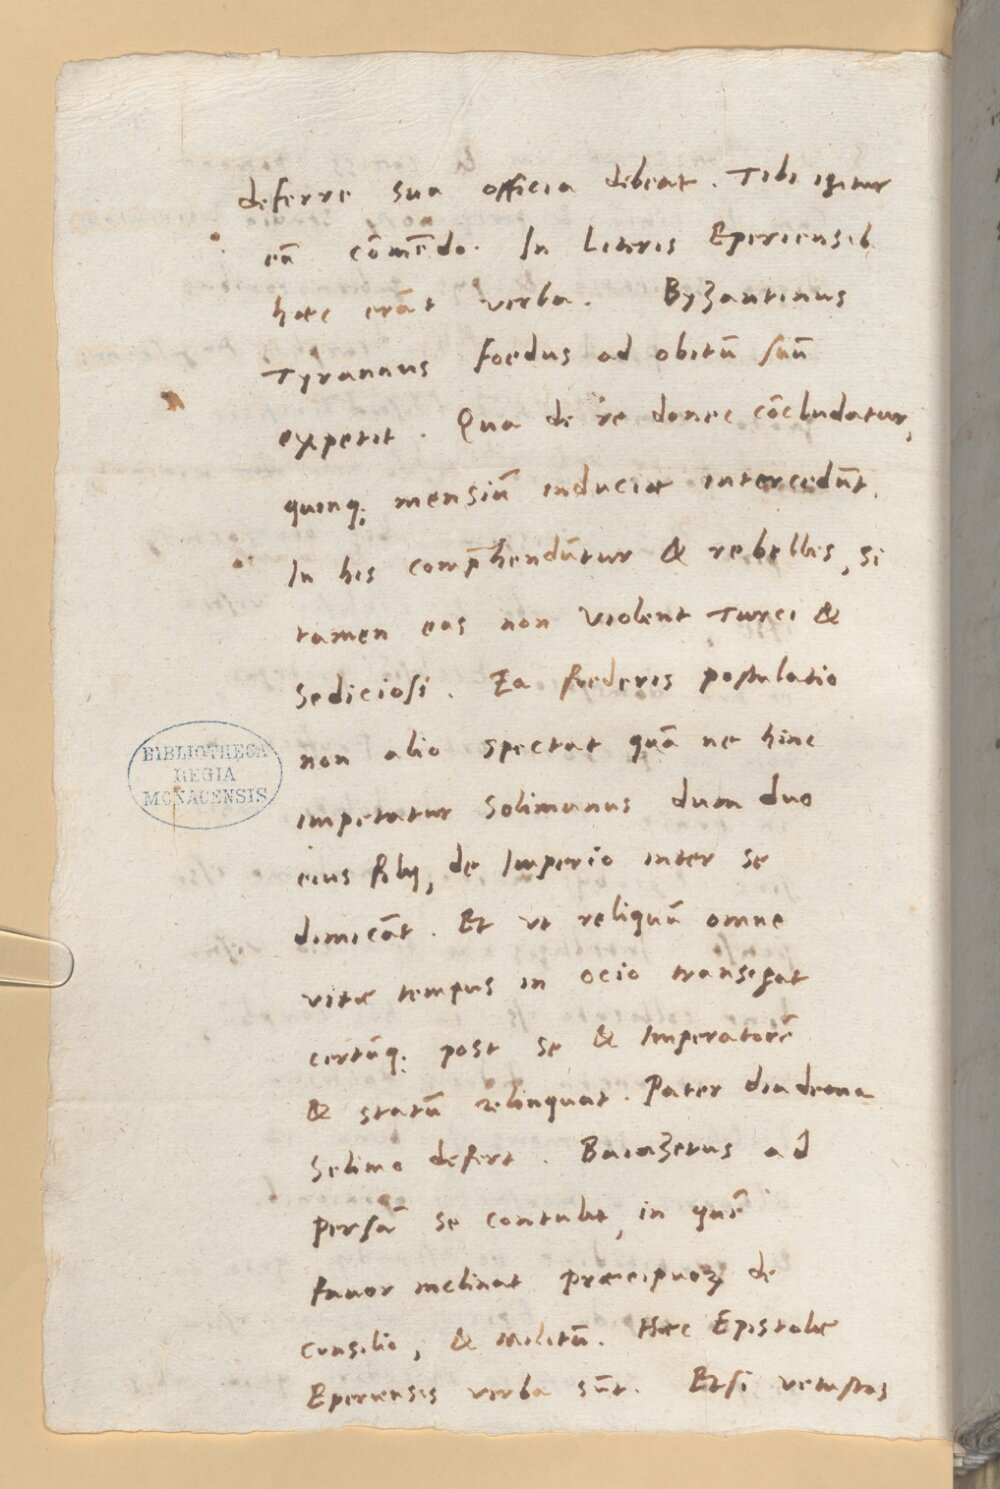 deferre sua officia debeat. Tibi igitur
eā cōmēdo. In Literis Eperiensib.
haec erāt verba. Byzantinus
Tyrannus foedus ad obitū suū
expetit. Qua de re donec cōcludatur,
quinq; mensiū induciae intercedūt.
In his comp̄hendūtur & rebelles, si
tamen eas non violent Turci &
sediciosi. Ea foederis postulatio
non alio spectat quā ne hinc
impetatur Solimanus dum duo
eius filij, de Imperio inter se
dimicāt. Et vt reliquū omne
vitae tempus in ocio transigat
certūq; post se & Imperatorē
& statū relinquat. Pater diadema
Selimo defert. Baiazetus ad
Persā se contulit, in quē
fauor inclinat praecipuoꝝ de
consilio, & militū. Haec Epistolae
Eperiensis verba sūt. Etsi vetustas
BIBLIOTHECA
REGIA
MONACENSIS